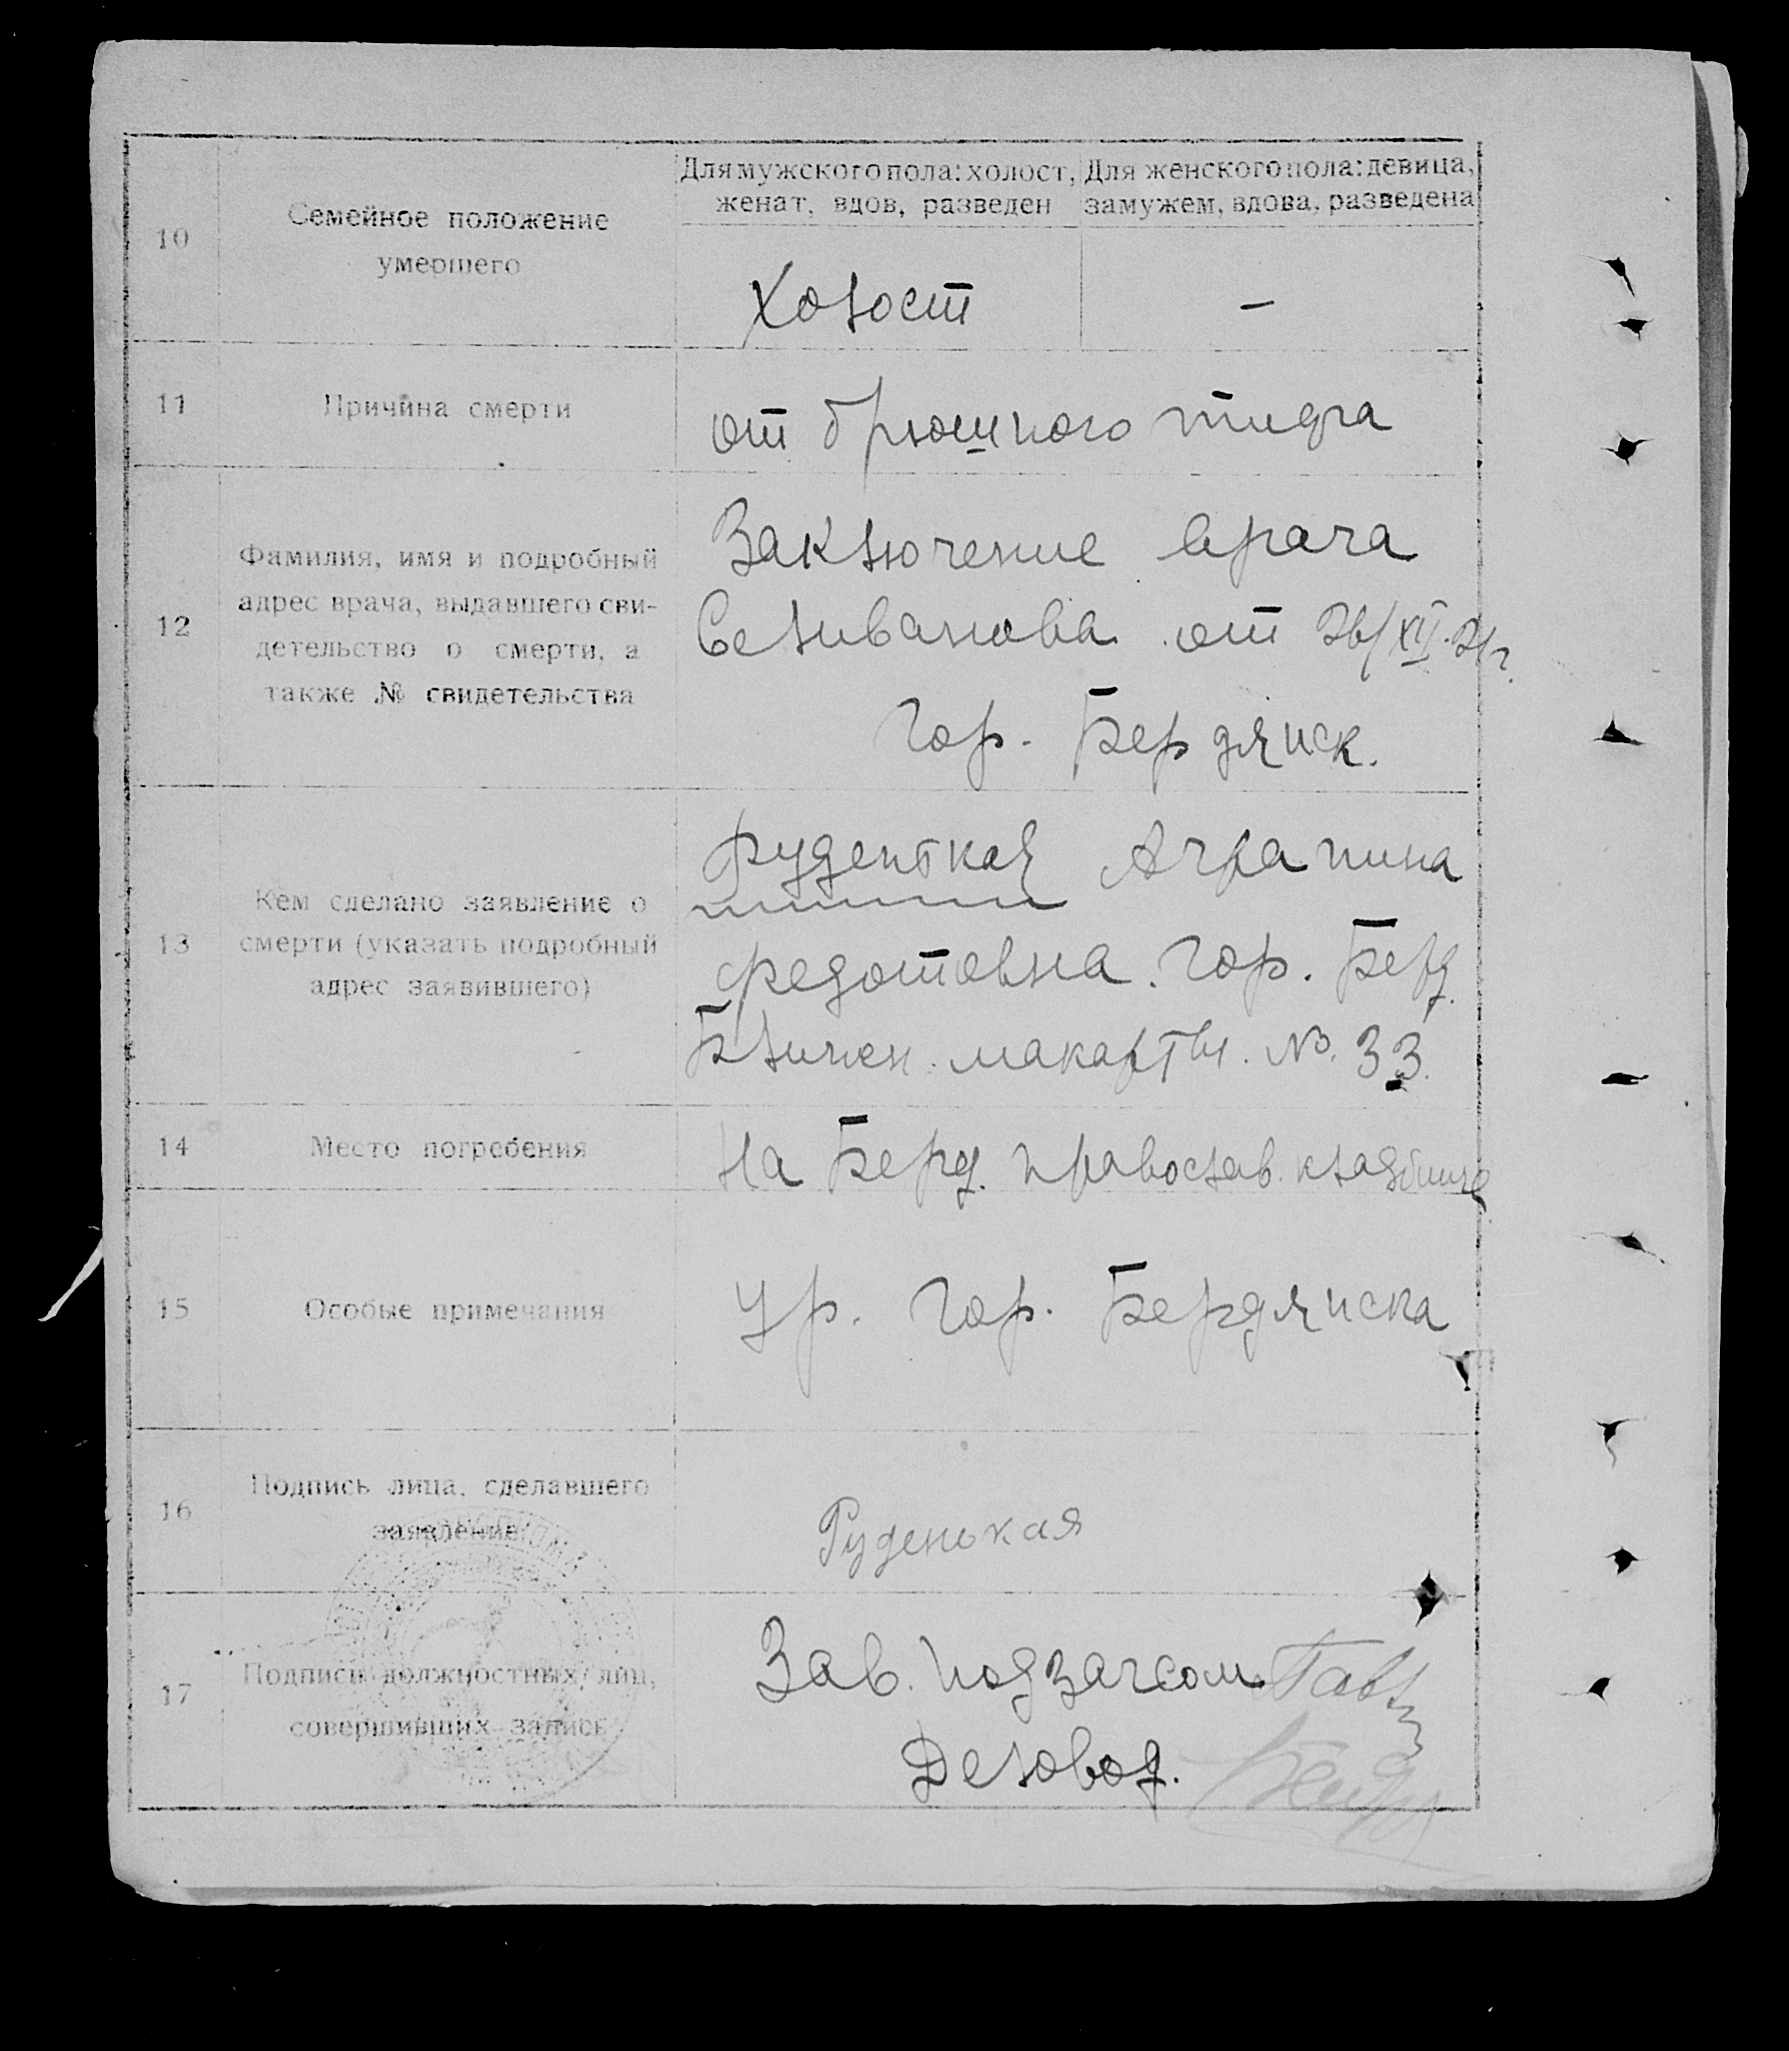 Для мужского пола: холост, женат, вдов, разведен
Для женского пола: девица, замужем, вдова, разведена
10
Семейное положение
умершего
Холост
–
11
Причина смерти
от брюшного тифа
12
Фамилия, имя и подробный
адрес врача, выдавшего сви-
детельство о смерти, а
также № свидетельства
Заключение врача
Селиванова от 26/XII-21г.
гор. Бердянск.
13
Кем сделано заявление о
смерти (указать подробный
адрес заявившего)
Руденькая Аграпина
Федотовна. гор. Берд.
Ближн. макорты. № 33.
14
Место погребения
На Берд. православ. кладбище
15
Особые примечания
Ур. гор. Бердянска
16
Подпись лица, сделавшего
заявление
Руденькая
17
Подписи должностных лиц,
совершивших запись
Зав. подзагсом
Деловод.